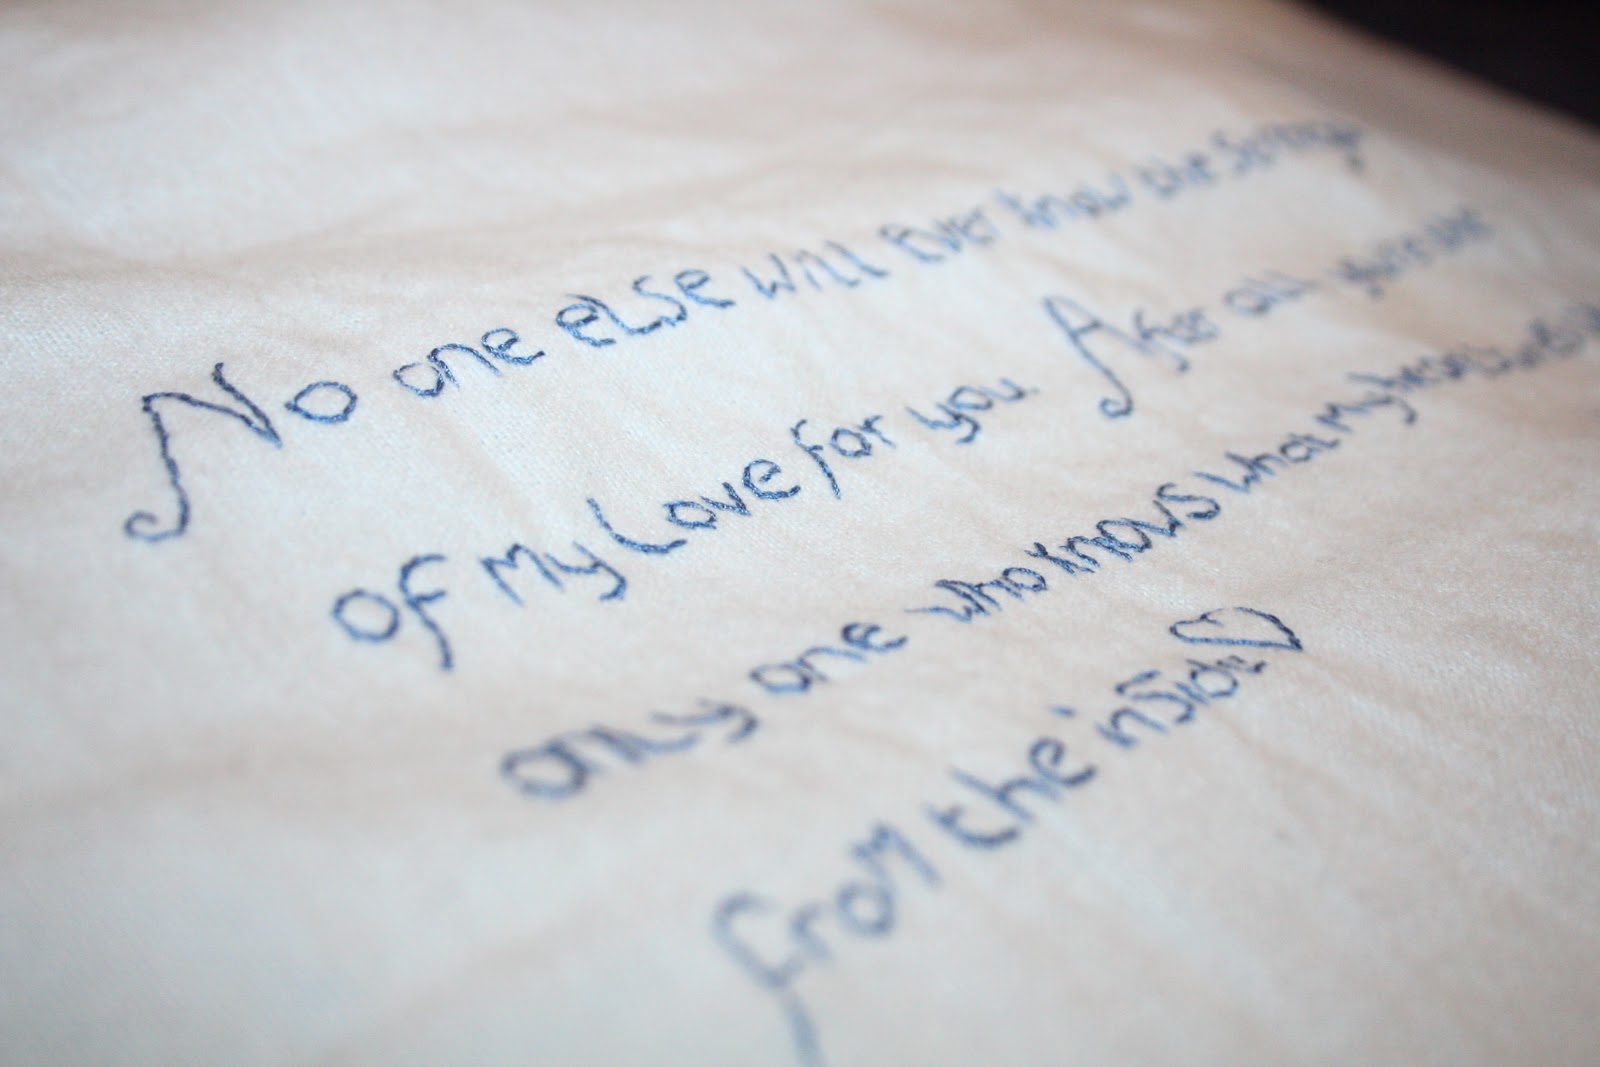 No one else will Ever know the Strength
of My Love for you. After all you're the
only one who knows what My heart sounds like
from the inside